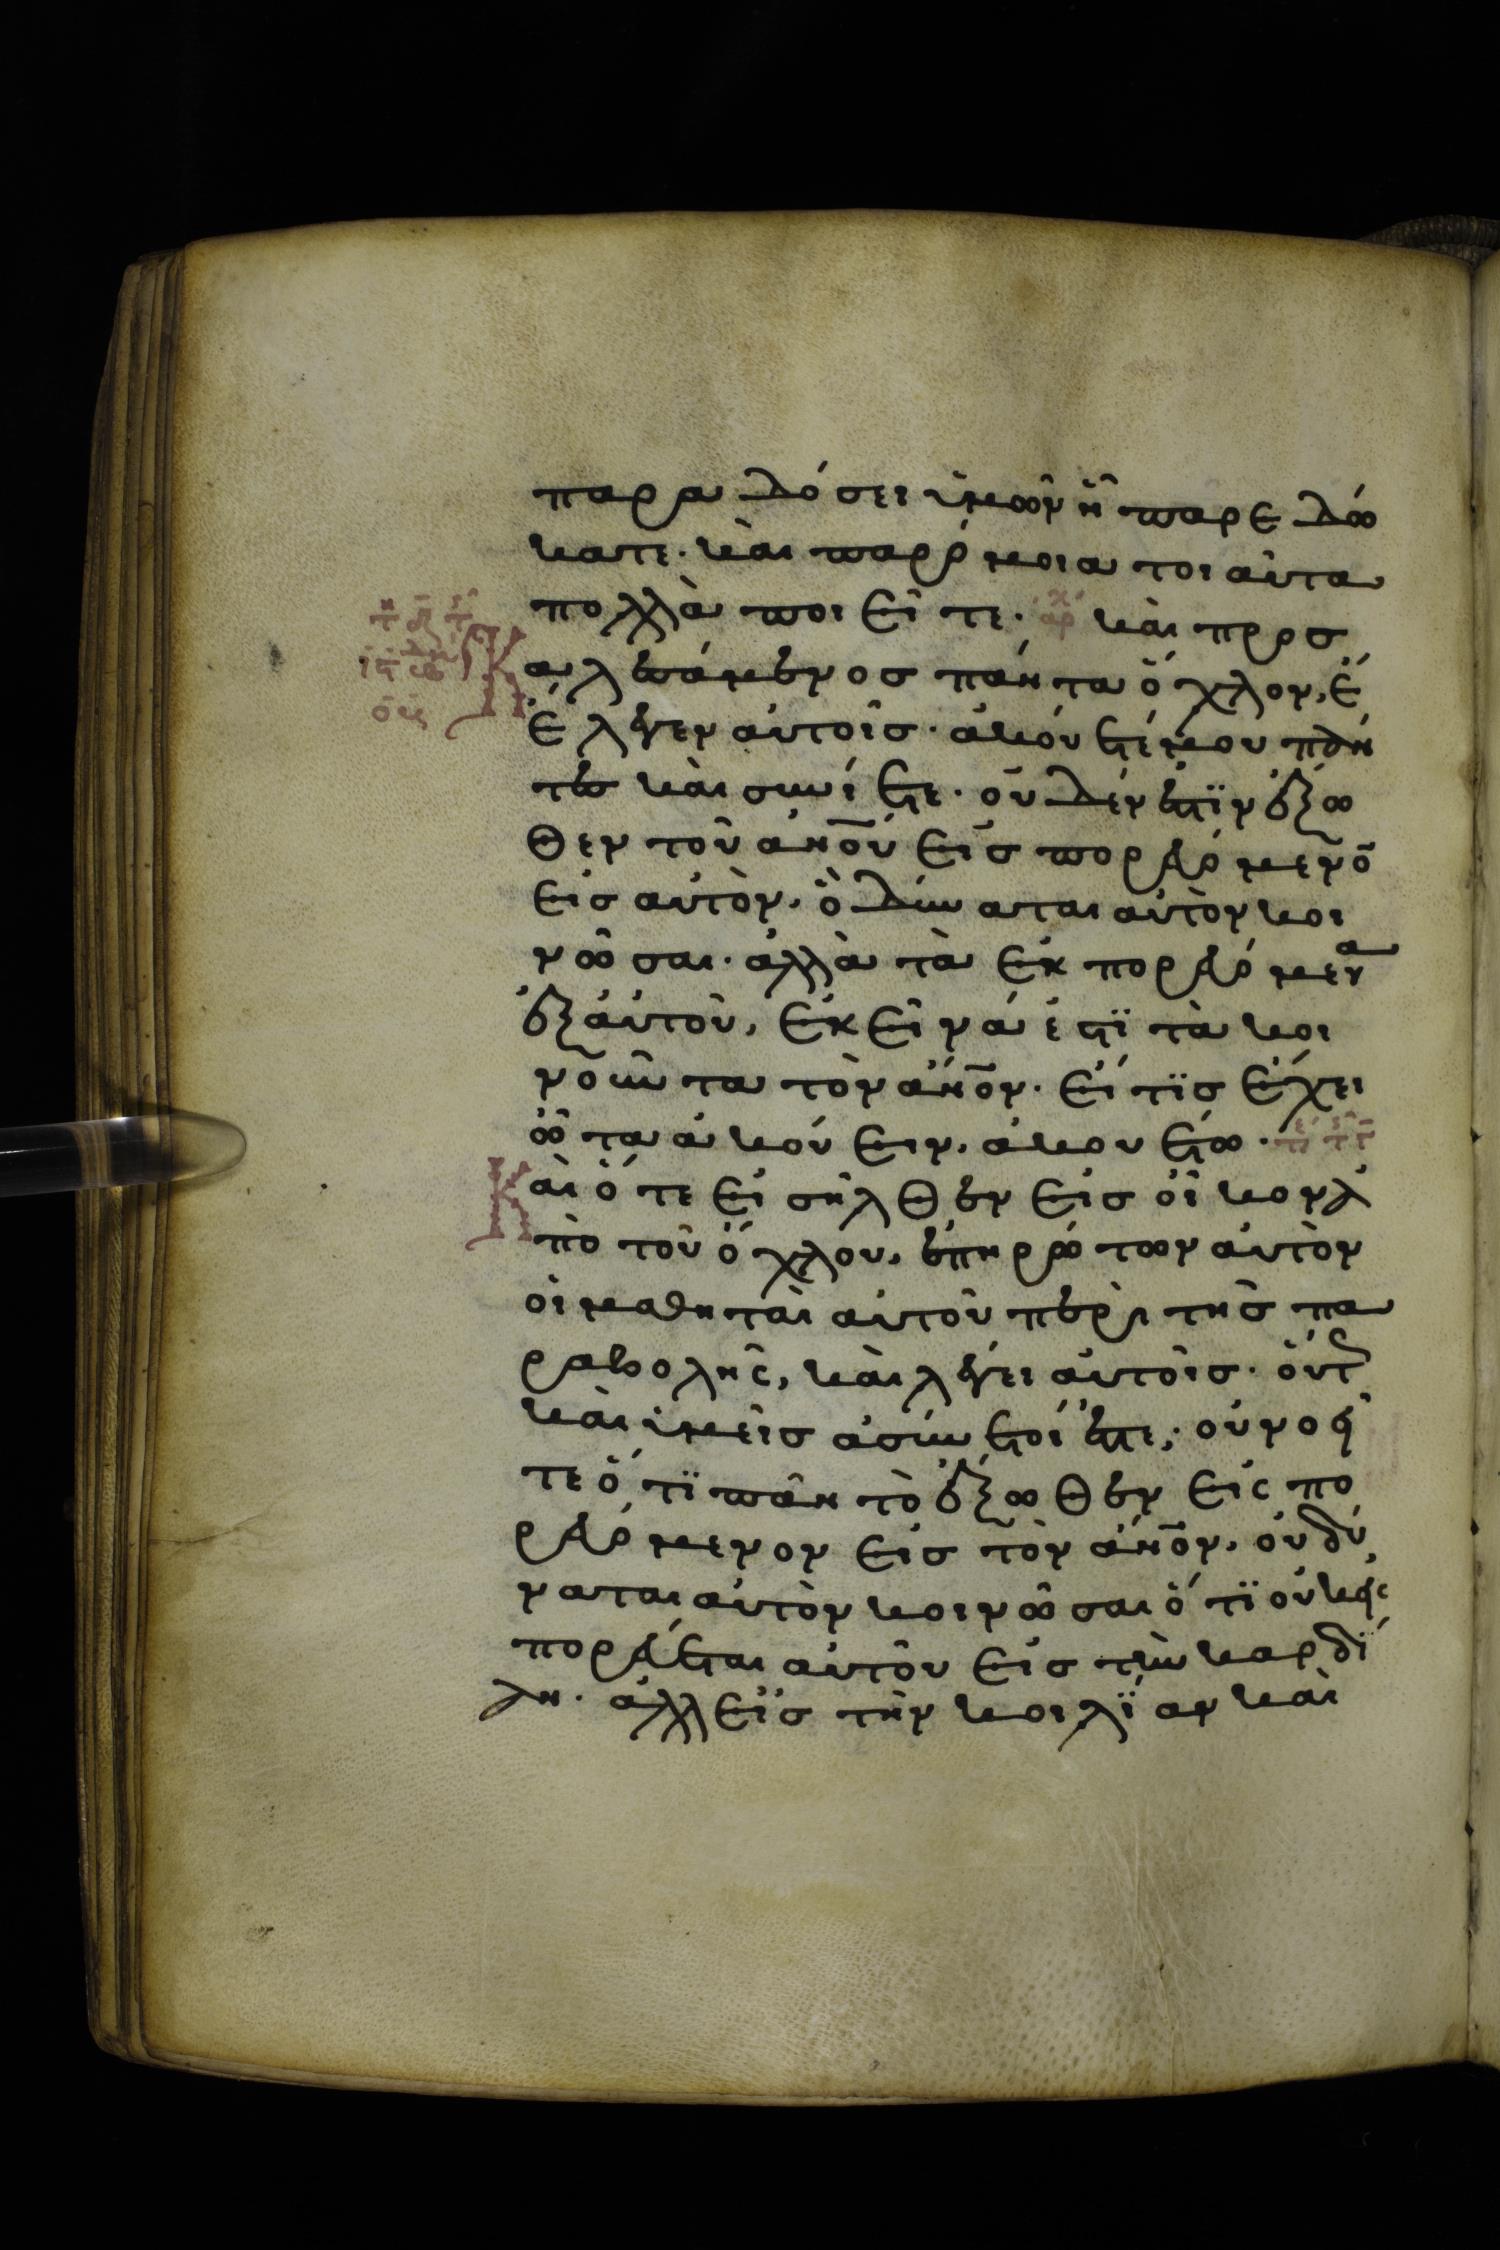 παραδόσει ὑμῶν ἧ παρεδώ
κατε· καὶ παρόμοια τοιαῦτα
πολλὰ ποιεῖτε· ἀρχ καὶ προσ
καλεσάμενος πάντα ὄχλον, ἔ
ἔλεγεν αὐτοῖς· ἀκούετέ μου πάν
τες καὶ συνίετε· οὐδέν ἐστϊν ἔξω
θεν τοῦ ἀν̅ο̅υ̅ εἰσπορευόμενο
εἰς αὐτὸν, ὃ δύναται αὐτὸν κοι
νῶσαι· ἀλλὰ τὰ ἐκπορευόμενα
ἐξ αὐτοῦ, ἐκεῖνά ἐστϊ τὰ κοι
νοῦντα τὸν ἄν̅ο̅ν̅· εἴ τϊς ἔχει
ὦτα ἀκούειν, ἀκουέτω·
Καὶ ὅτε εἰσῆλθεν εἰς οἶκον ἀ
πὸ τοῦ ὄχλου, ἐπηρώτων αὐτὸν
οἱ μαθηταὶ αὐτοῦ περὶ τῆς πα
ραβολῆς, καὶ λέγει αὐτοῖς· οὕτ
καὶ ὑμεῖς ἀσύνετοί ἐστε; οὐ νοεῖ
τε ὅτϊ πᾶν τὸ ἔξωθεν εἰσπο
ρευόμενον εἰς τὸν ἄν̅ο̅ν̅, οὐ δύ
ναται αὐτὸν κοινῶσαι ὅτϊ οὐκ εἰσ
πορεύεται αὐτοῦ εἰς τὴν καρδί
αν· ἀλλ εἰς τὴν κοιλϊαν καὶ